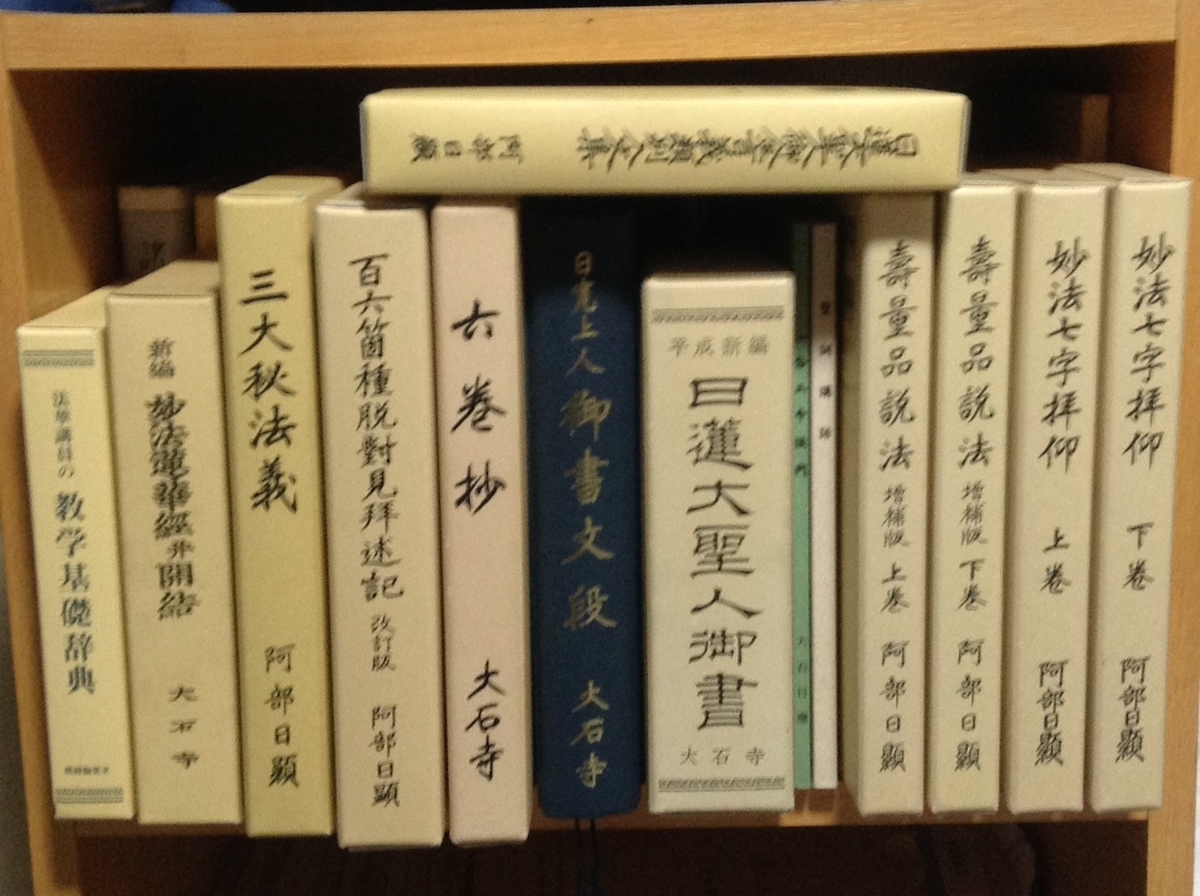 日蓮大聖人御金言義類別全集 阿部日顕
法華講員の 教学基礎辞典
新編 妙法蓮華經并開結 大石寺
三大秘法義 阿部日顯
百六箇種脱對見拝述記 改訂版 阿部日顯
六巻抄 大石寺
日寛上人 御書文段 大石寺
平成新編
日蓮大聖人御書
大石寺
壽量品説法 増補版 上巻 阿部日顯
壽量品説法 増補版 下巻 阿部日顯
妙法七字拝仰 上巻 阿部日顯
妙法七字拝仰 下巻 阿部日顯